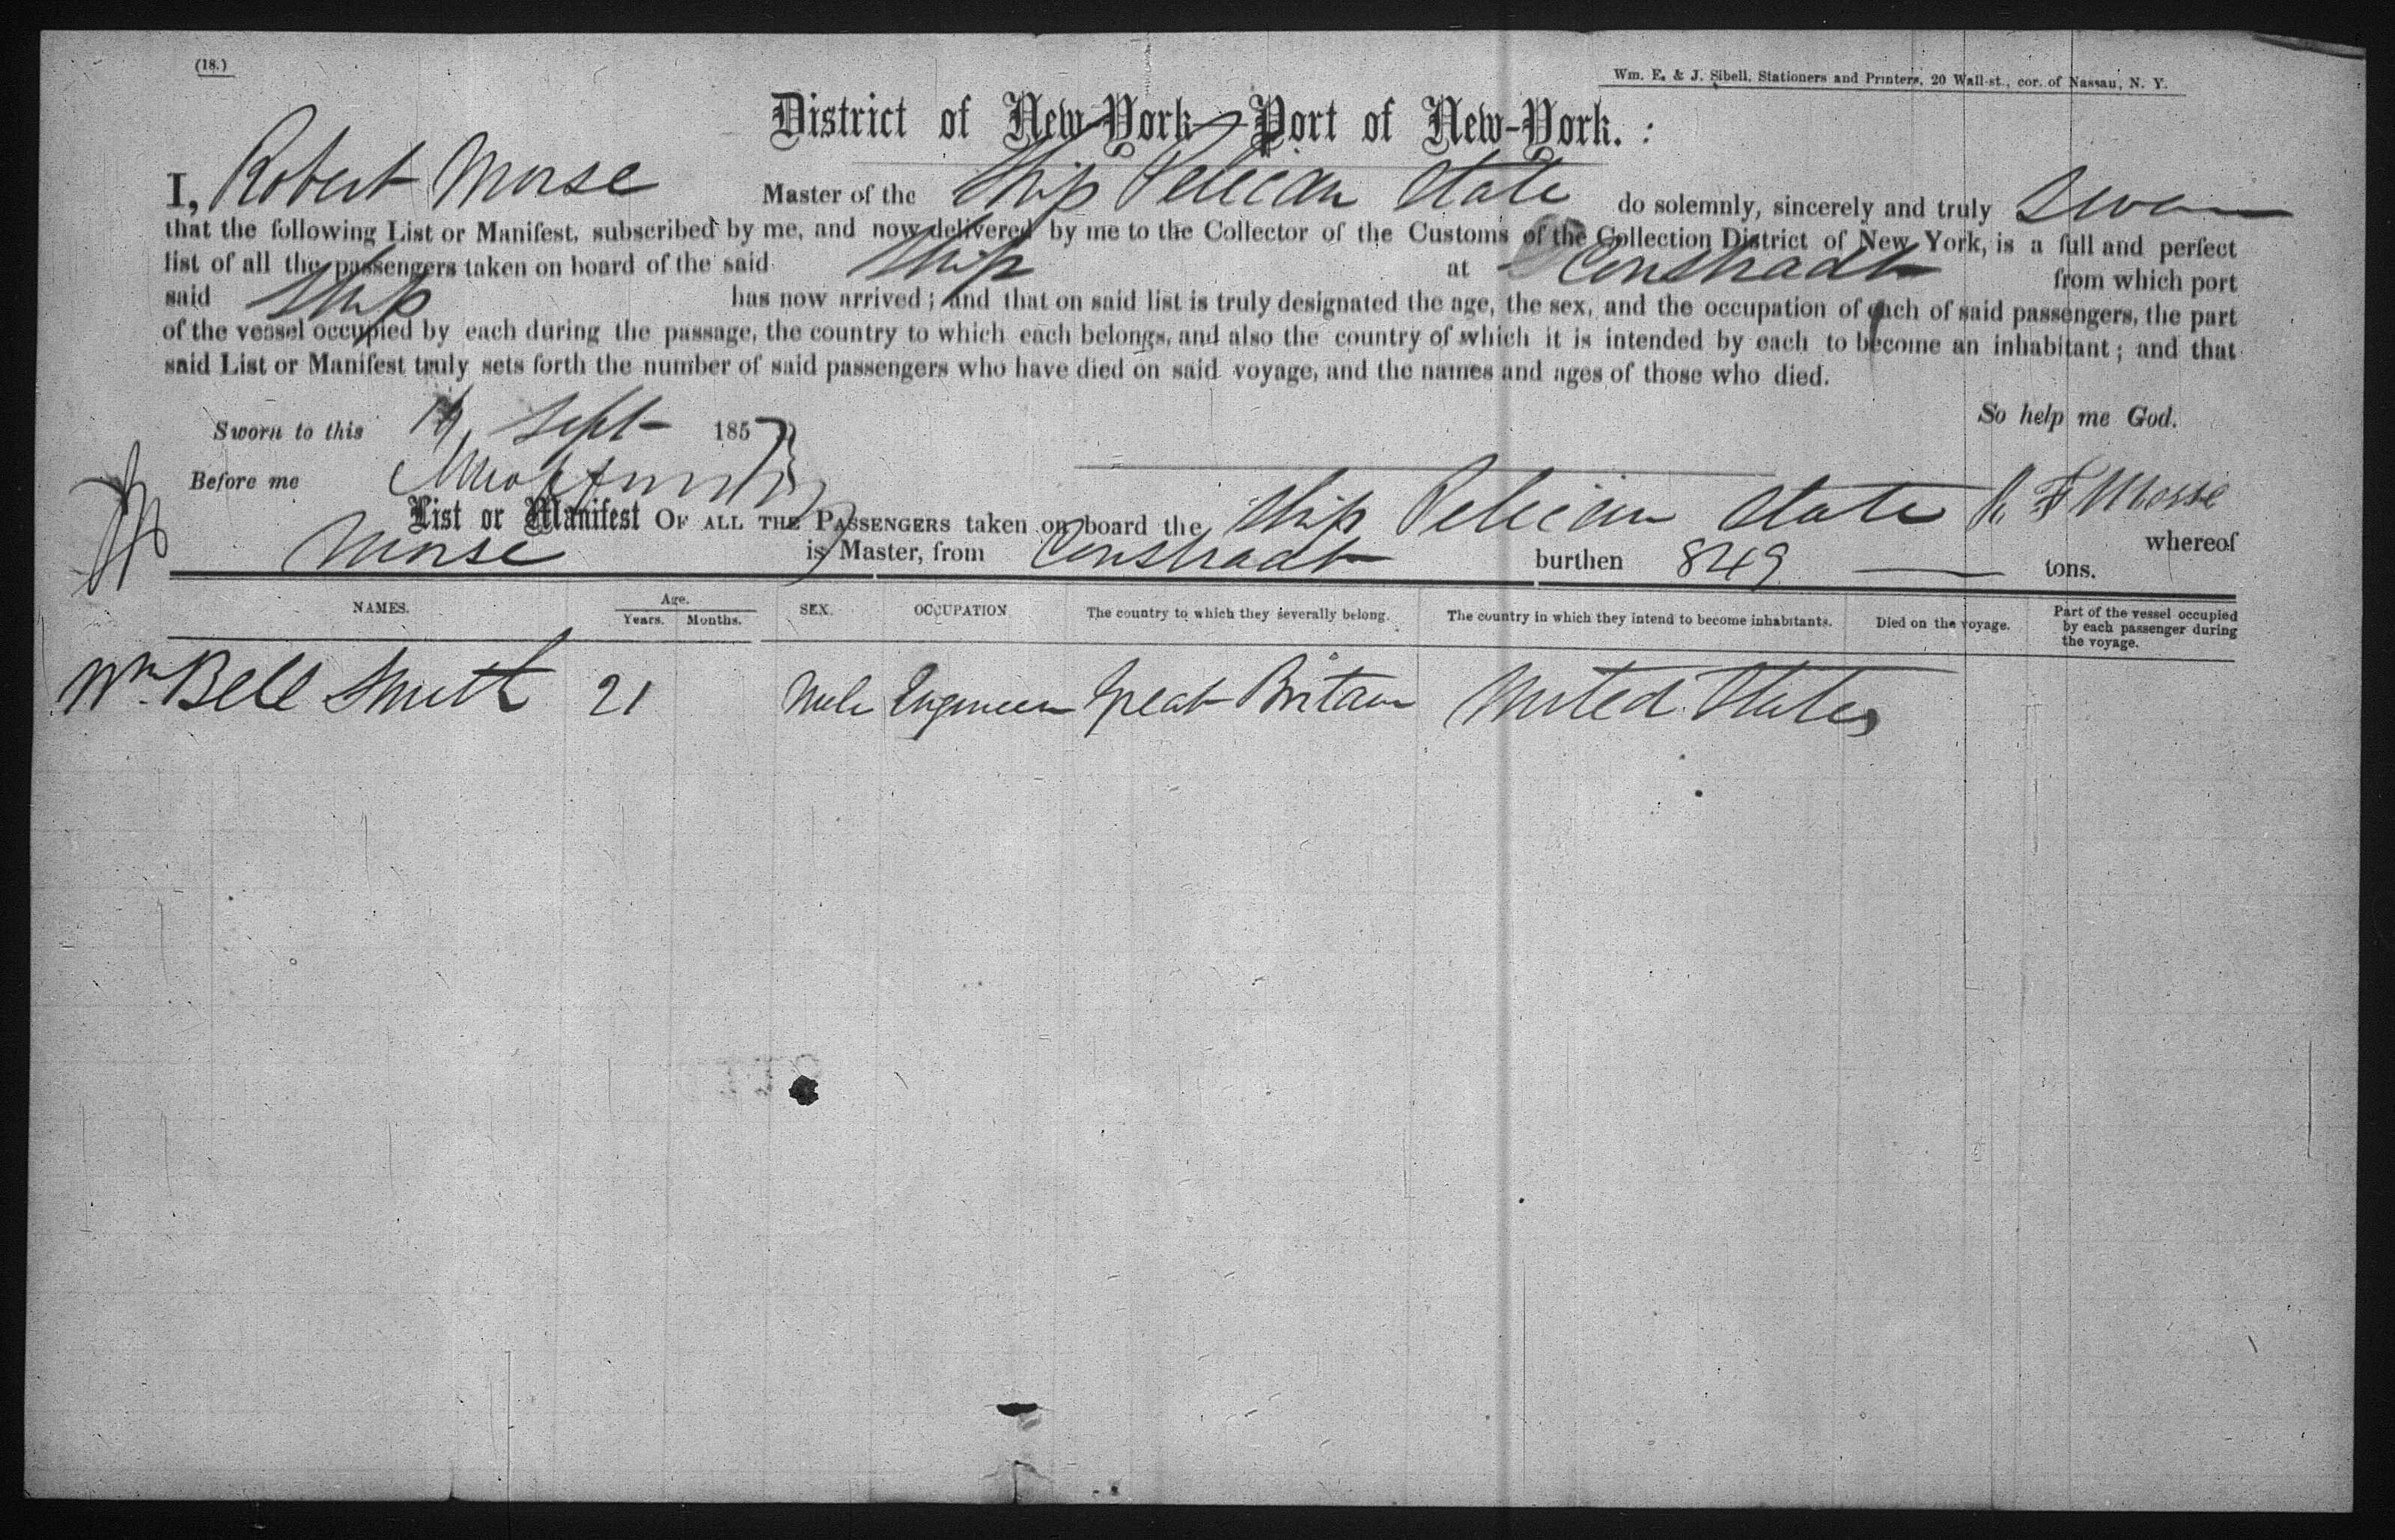 (18.)
Wm. E. & J. Sibell, Stationers and Printers, 20 Wall-st., cor. of Nassau, N. Y.
District of New-York—Port of New-York. :
I, Robert Morse Master of the Ship Pelican State do solemnly, sincerely and truly Swear
that the following List or Manifest, subscribed by me, and now delivered by me to the Collector of the Customs of the Collection District of New York, is a full and perfect
list of all the passengers taken on board of the said Ship at Constradt from which port
said Ship has now arrived; and that on said list is truly designated the age, the sex, and the occupation of each of said passengers, the part
of the vessel occupied by each during the passage, the country to which each belongs, and also the country of which it is intended by each to become an inhabitant; and that
said List or Manifest truly sets forth the number of said passengers who have died on said voyage, and the names and ages of those who died.
So help me God.
Sworn to this Sept 1857
Before me
R. F Morse
List or Manifest OF ALL THE PASSENGERS taken on board the Ship Pelican State whereof
Morse is Master, from Constradt burthen 849 tons.
NAMES. Age. Years. Months. SEX. OCCUPATION The country to which they severally belong. The country in which they intend to become inhabitants. Died on the voyage. Part of the vessel occupied by each passenger during the voyage.
Wm Bell Smith 21 Male Engineer Great Britain United States